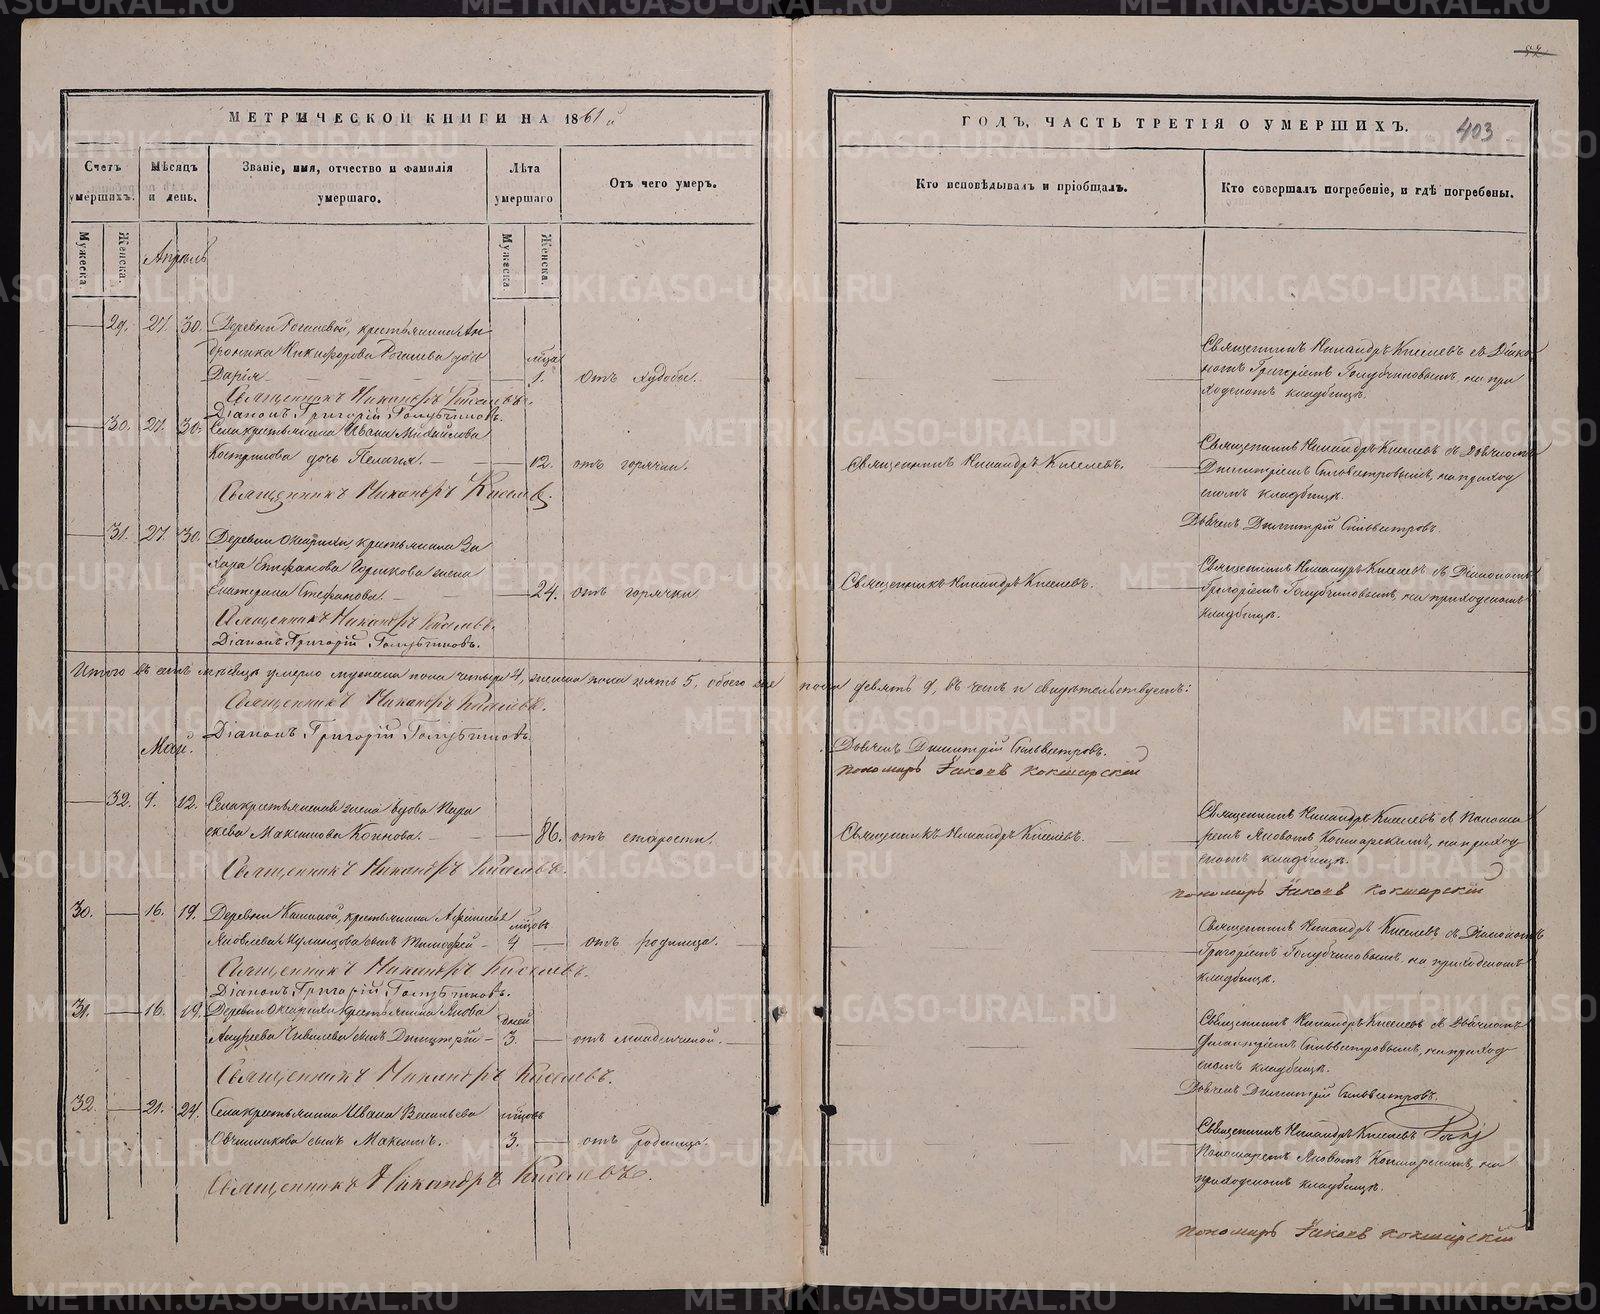 МЕТРИЧЕСКОЙ КНИГИ НА 1861й
Счетъ умершихъ.
Мѣсяцъ и день.
Званіе, имя, отчество и фамилія умершаго.
Лѣта умершаго
Отъ чего умеръ.
Мужеска.
Женска.
Мужеска.
Женска.
Апрѣль
29. 27. 30. Деревни Рогалевой, крестьянина Ан
дроника Никифорова дочь
Дарія 1. отъ худобы.
Священникъ Никандръ Киселевъ.
Діаконъ Григорій Голубчиковъ.
30. 27. 30. Села крестьянина Ивана Михайлова
Кострикова дочь Пелагія. 12. отъ горячки.
Священникъ Никандръ Киселевъ.
31. 27. 30. Деревни крестьянина За
хара жена
Екатерина Стефанова. 24. отъ горячки.
Священникъ Никандръ Киселевъ.
Діаконъ Григорій Голубчиковъ.
Итого въ семъ мѣсяцѣ умерло мужеска пола четыре 4, женска пола пять 5, обоего
Священникъ Никандръ Киселевъ.
Діаконъ Григорій Голубчиковъ
Май.
32. 9. 12. Села крестьянская жена вдова Пара
скева Максимова 86. отъ старости.
Священникъ Никандръ Киселевъ.
30. 16. 19. Деревни крестьянина
Яковлева сынъ Тимофей 4 отъ родимца.
Священникъ Никандръ Киселевъ.
Діаконъ Григорій Голубчиковъ.
31. 16. 19. Деревни крестьянина Якова
Андреева сынъ Димитрій дней 3. отъ младенческой.
Священникъ Никандръ Киселевъ.
32 21. 24. Села крестьянина Ивана Васильева
Овчинникова сынъ Максимъ. 3. отъ родимца.
Священникъ Никандръ Киселевъ.
52
ГОДЪ, ЧАСТЬ ТРЕТІЯ О УМЕРШИХЪ.
403
Кто исповѣдывалъ и пріобщалъ.
Кто совершалъ погребеніе, и гдѣ погребены.
Священникъ Никандръ Киселевъ съ Діако
номъ Григоріемъ Голубчиковымъ, на при
ходскомъ кладбищѣ.
Священникъ Никандръ Киселевъ.
Священникъ Никандръ Киселевъ съ Дьячкомъ
Димитріемъ Сильвестровымъ, на приход
скомъ кладбищѣ.
Дьячекъ Димитрій Сильвестровъ.
Священникъ Никандръ Киселевъ.
Священникъ Никандръ Киселевъ съ Діакономъ
Григоріемъ Голубчиковымъ, на приходскомъ
кладбищѣ.
пола девять 9, въ чемъ и свидѣтельствуемъ:
Дьячекъ Димитрій Сильвестровъ.
пономарь Іаковъ Кокшарскій
Священникъ Никандръ Киселевъ.
Священникъ Никандръ Киселевъ съ Понома
ремъ Яковомъ Кокшарскимъ, на приход
скомъ кладбищѣ.
пономарь Іаковъ Кокшарскій
Священникъ Никандръ Киселевъ съ Діакономъ
Григоріемъ Голубчиковымъ, на приходскомъ
кладбищѣ.
Священникъ Никандръ Киселевъ съ Дьячкомъ
Димитріемъ Сильвестровымъ, на приход
скомъ кладбищѣ.
Дьячекъ Димитрій Сильвестровъ.
Священникъ Никандръ Киселевъ
Пономаремъ Яковомъ Кокшарскимъ, на
приходскомъ кладбищѣ.
пономарь Іаковъ Кокшарскій
METRIKI.GASO-URAL.RU